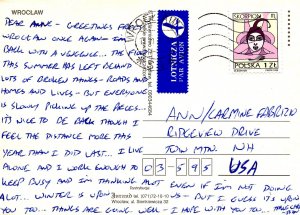 WROCŁAW
DEAR ANNE - GREETINGS FROM
WROCLAW ONCE AGAIN - I'M
BACK WITH A VENGENCE... THE FLOOD
THIS SUMMER HAS LEFT BEHIND
LOTS OF BROKEN THINGS - ROADS AND
HOMES AND LIVES - BUT EVERYONE
IS SLOWLY PICKING UP THE PIECES...
IT'S NICE TO BE BACK THOUGH I
FEEL THE DISTANCE MORE THIS
YEAR THAN I DID LAST... I LIVE
ALONE AND I WORK ENOUGH TO
KEEP BUSY AND I'M THINKING A LOT EVEN IF I'M NOT DOING
ALOT. WINTER IS BUT I GUESS IT'S
YOU TOO. THINGS ARE GOING WELL - I HOPE WITH YOU TOO
SKORPION
POLSKA 1 ZŁ
LOTNICZA
PAR AVION
ANN/CARMINE FABRIZIO
RIDGEVIEW DRIVE
TOW MTN. NH
03-595
USA